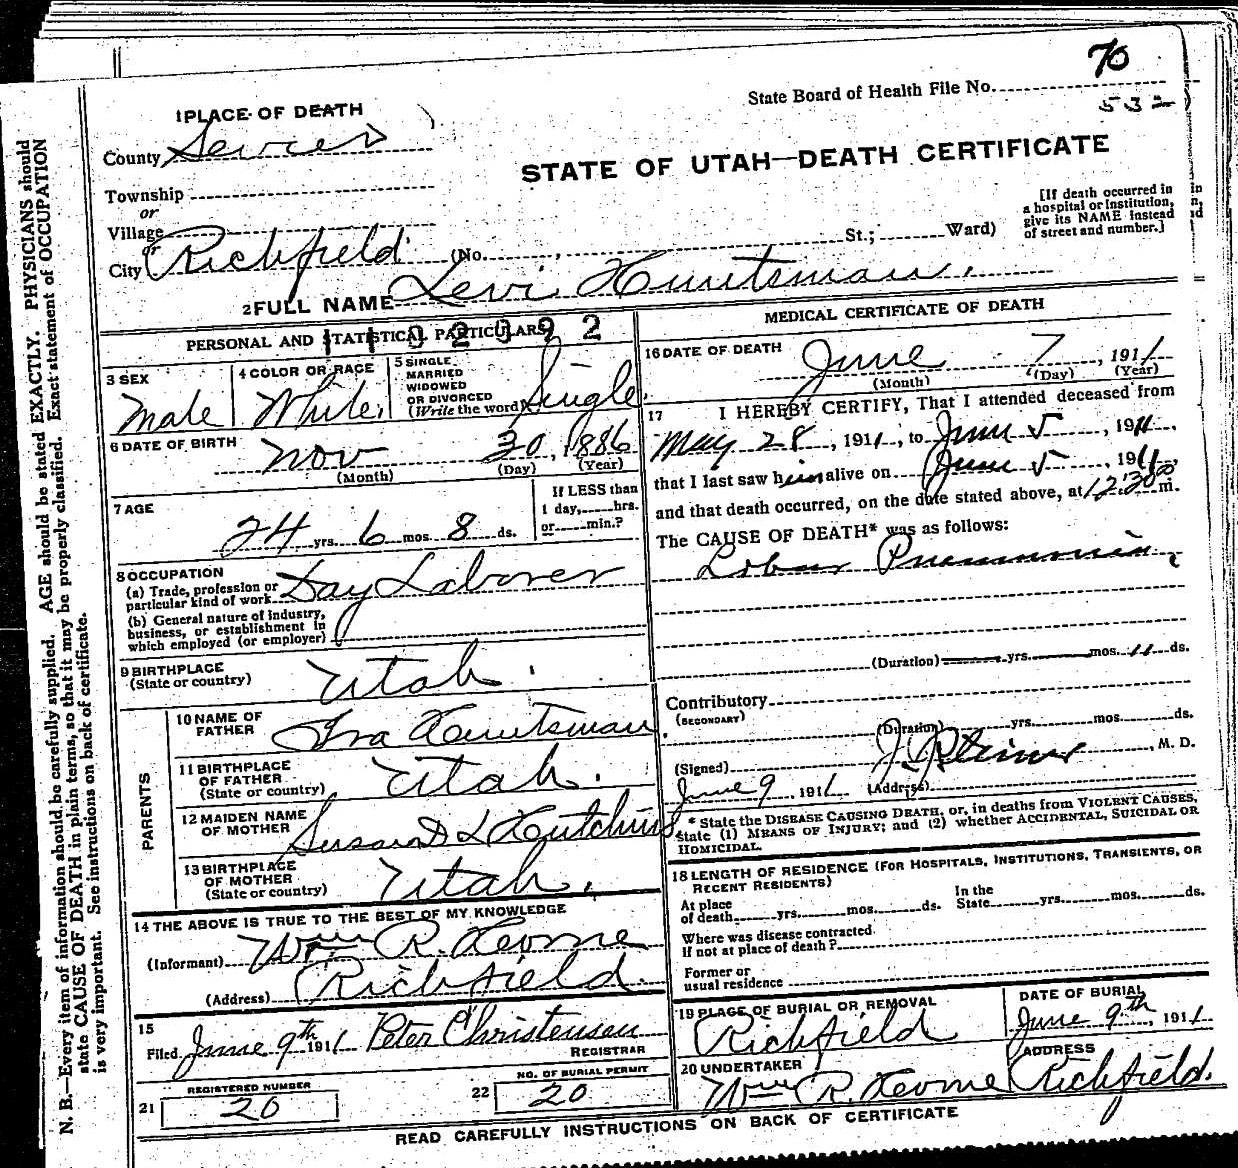 70
State Board of Health File No.
532
1 PLACE OF DEATH
County Sevier
STATE OF UTAH—DEATH CERTIFICATE
Township
or
Village
or
City Richfield (No. , St.; Ward)
[If death occurred in
a hospital or institution,
give its NAME instead
of street and number.]
2 FULL NAME Levi Huntsman.
PERSONAL AND STATISTICAL PARTICULARS
3 SEX
Male
4 COLOR OR RACE
White.
5 SINGLE
MARRIED
WIDOWED
OR DIVORCED
(Write the word) Single.
6 DATE OF BIRTH
Nov 30, 1886
(Month) (Day) (Year)
7 AGE
24 yrs. 6 mos. 8 ds.
If LESS than
1 day, hrs.
or min.?
8 OCCUPATION
(a) Trade, profession or
particular kind of work Day Laborer
(b) General nature of industry,
business, or establishment in
which employed (or employer)
9 BIRTHPLACE
(State or country) Utah.
PARENTS
10 NAME OF
FATHER Ira Huntsman.
11 BIRTHPLACE
OF FATHER
(State or country) Utah.
12 MAIDEN NAME
OF MOTHER Susan D L Hutchins
13 BIRTHPLACE
OF MOTHER
(State or country) Utah.
14 THE ABOVE IS TRUE TO THE BEST OF MY KNOWLEDGE
(Informant) Wm R.
(Address) Richfield.
15
Filed June 9th 1911 Peter Christensen
REGISTRAR
21 REGISTERED NUMBER
20
22 NO. OF BURIAL PERMIT
20
MEDICAL CERTIFICATE OF DEATH
16 DATE OF DEATH
June 7, 1911
(Month) (Day) (Year)
17 I HEREBY CERTIFY, That I attended deceased from
May 28, 1911, to June 5, 1911,
that I last saw him alive on June 5, 1911,
and that death occurred, on the date stated above, at 12:30 m.
The CAUSE OF DEATH* was as follows:
Lobar Pneumonia
(Duration) yrs. mos. 11 ds.
Contributory
(SECONDARY)
(Duration) yrs. mos. ds.
(Signed) , M. D.
June 9, 1911 (Address)
* State the DISEASE CAUSING DEATH, or, in deaths from VIOLENT CAUSES,
state (1) MEANS OF INJURY; and (2) whether ACCIDENTAL, SUICIDAL OR
HOMICIDAL.
18 LENGTH OF RESIDENCE (FOR HOSPITALS, INSTITUTIONS, TRANSIENTS, OR
RECENT RESIDENTS)
At place
of death yrs. mos. ds.
In the
State yrs. mos. ds.
Where was disease contracted
if not at place of death?
Former or
usual residence
19 PLACE OF BURIAL OR REMOVAL
Richfield
DATE OF BURIAL
June 9th, 1911
20 UNDERTAKER
Wm R.
ADDRESS
Richfield.
READ CAREFULLY INSTRUCTIONS ON BACK OF CERTIFICATE
N. B.—Every item of information should be carefully supplied. AGE should be stated EXACTLY. PHYSICIANS should
state CAUSE OF DEATH in plain terms, so that it may be properly classified. Exact statement of OCCUPATION
is very important. See instructions on back of certificate.